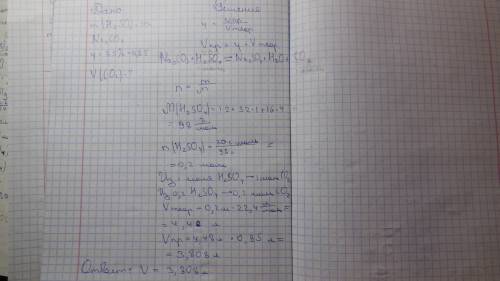 Дано
Решение
Na₂CO₃
V(CO₂) - ?
η = Vпр / Vтеор
Vпр = η * Vтеор
Na₂CO₃ + H₂SO₄ = Na₂SO₄ + H₂O + CO₂
n = m
M(H₂SO₄) = 1·2 + 32·1 + 16·4 =
= 98 г/моль
n(H₂SO₄) =
= 0,2 моль
Из 1 моля H₂SO₄ → 1 моль CO₂
Из 0,2 H₂SO₄ → 0,2 моль CO₂
Vтеор = 0,2 м · 22,4 л/моль =
= 4,48 л
Vпр = 4,48 л * 0,85 л =
= 3,808 л
Ответ: V = 3,808 л